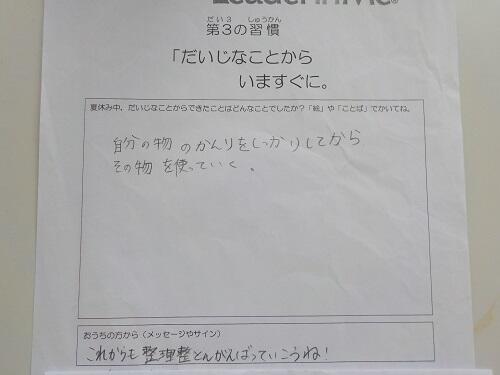 Leader in Me®
だい3 しゅうかん
第3の習慣
「だいじなことから
いますぐに。
夏休み中、だいじなことからできたことはどんなことでしたか?「絵」や「ことば」でかいてね。
自分の物のかんりをしっかりしてから
その物を使っていく。
おうちの方から(メッセージやサイン)
これからも整理整とんがんばっていこうね!